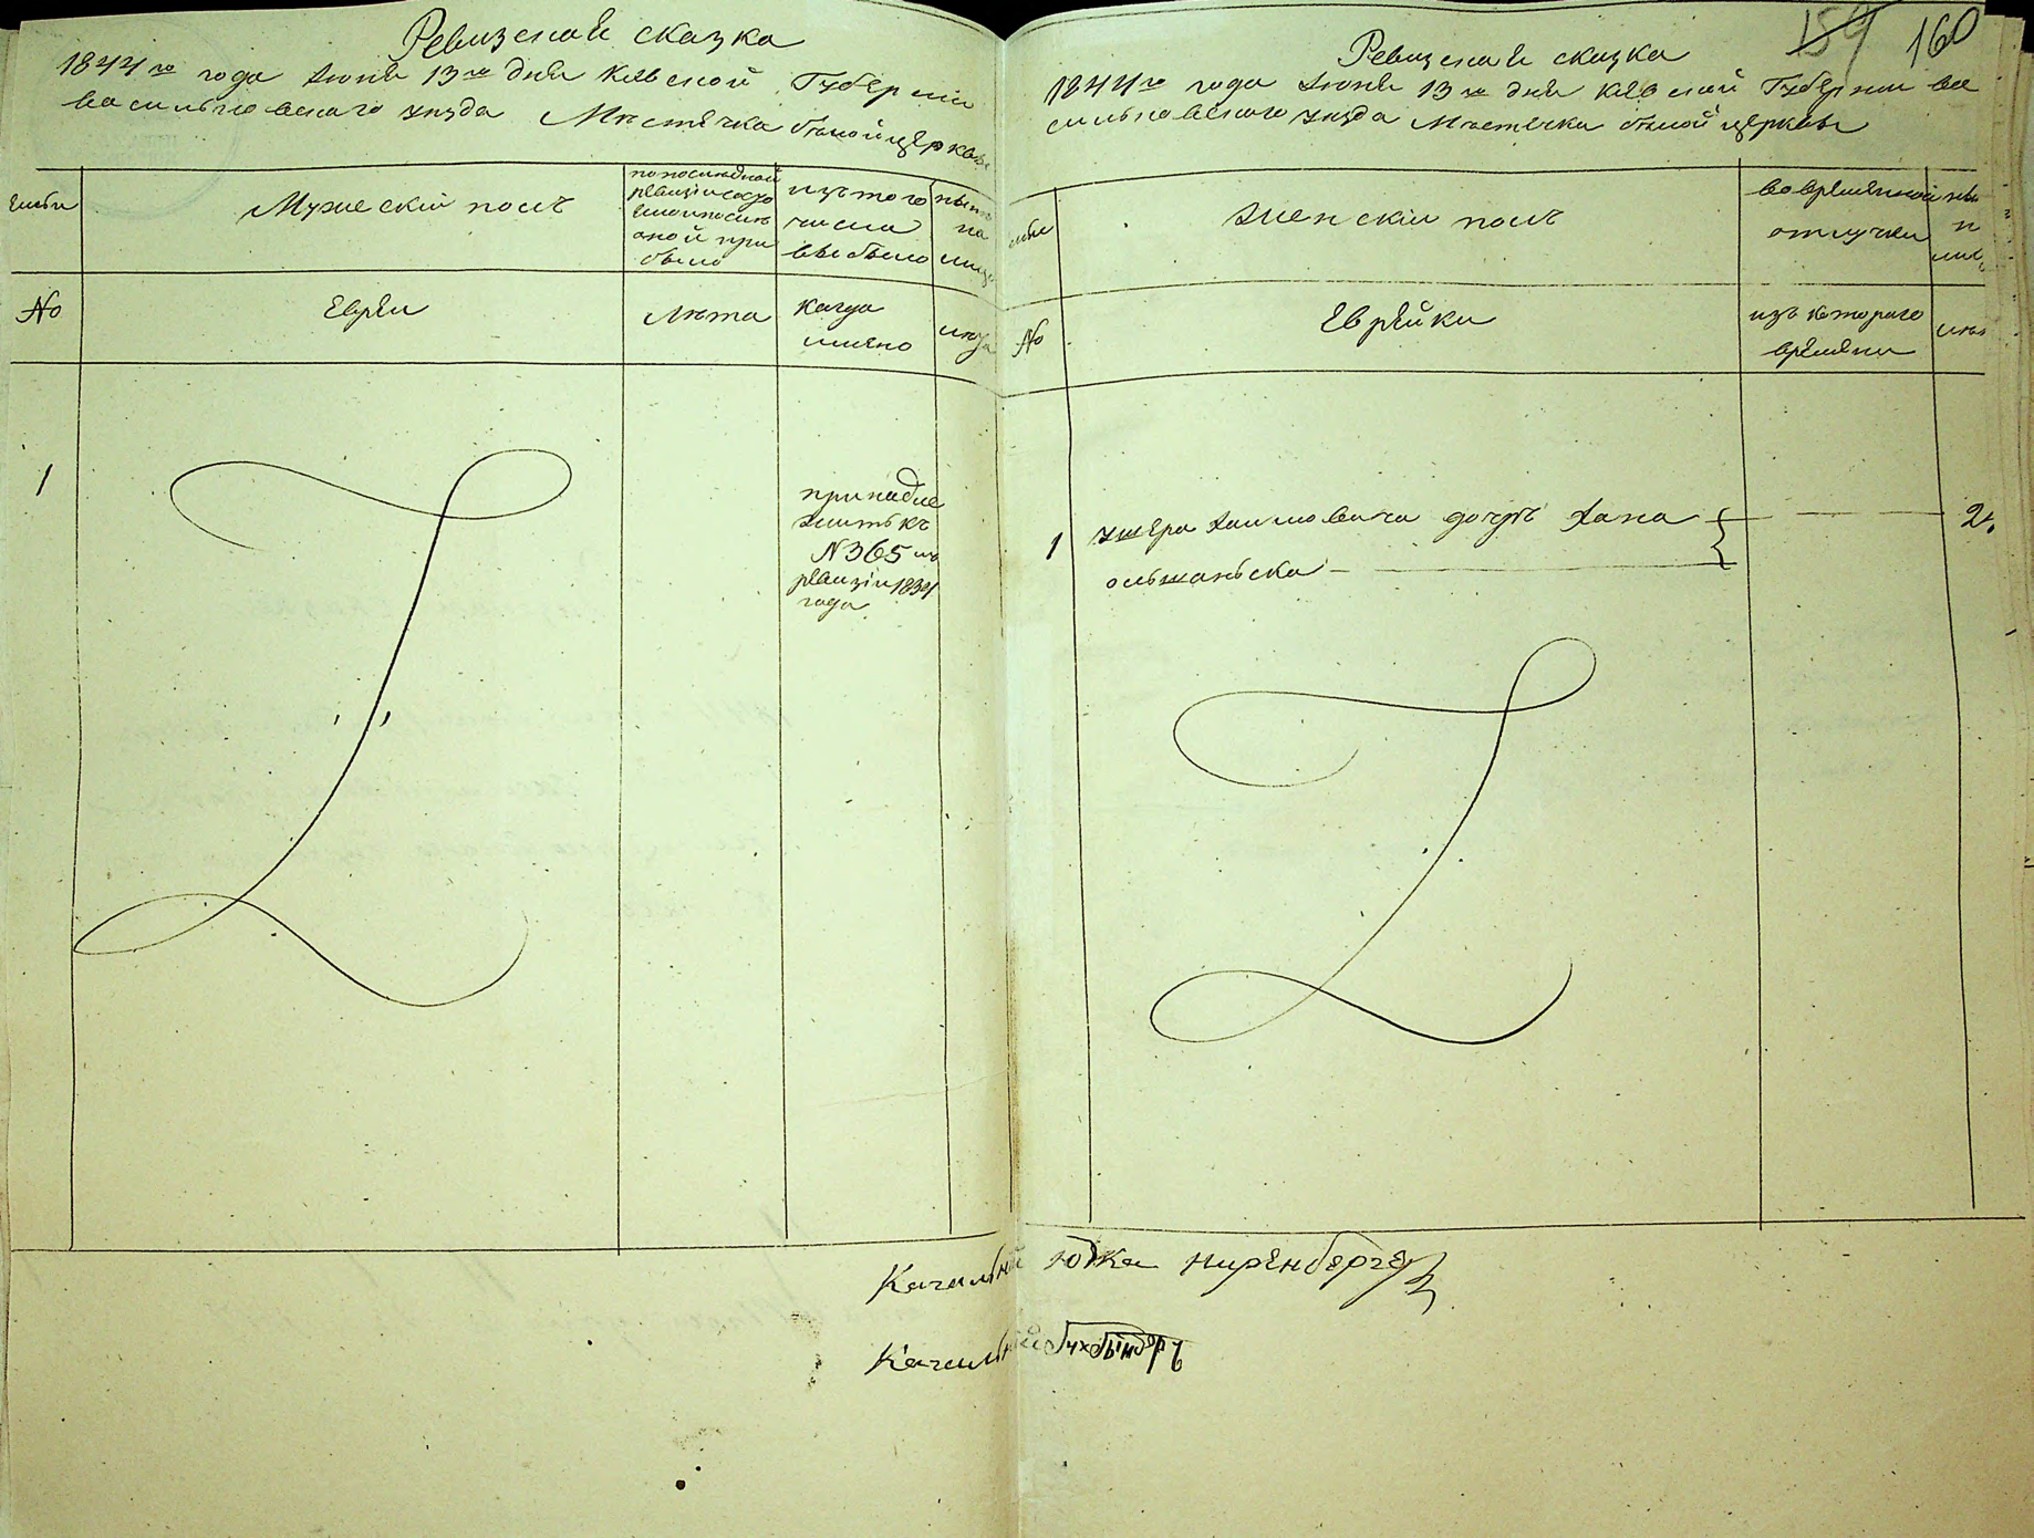 Ревизская сказка
1844го года июня 13го дня Киевской Губернии
васильковского уезда Местечка белой церкви
семьи
Мужеский полъ
по последной
ревизии состо
яло и после
оной при
было
изъ того
числа
выбыло
ныне
на
лицо
№
Евреи
Лета
когда
имено
лета
1
принадле
жить къ
N 365 по
ревизии 1834
года
159 160
Ревизская сказка
1844го года июня 13го дня Киевской Губернии ва
сильковского уезда Местечка белой церкви
семьи
женский полъ
во временной
отлучки
№
Еврейки
изъ которого
времени
лета
1 Ушера Хаимовича дочерь Хана 24
ольшаньска
Кагальный Юдка Ниренберг
Кагальный Бухбындеръ